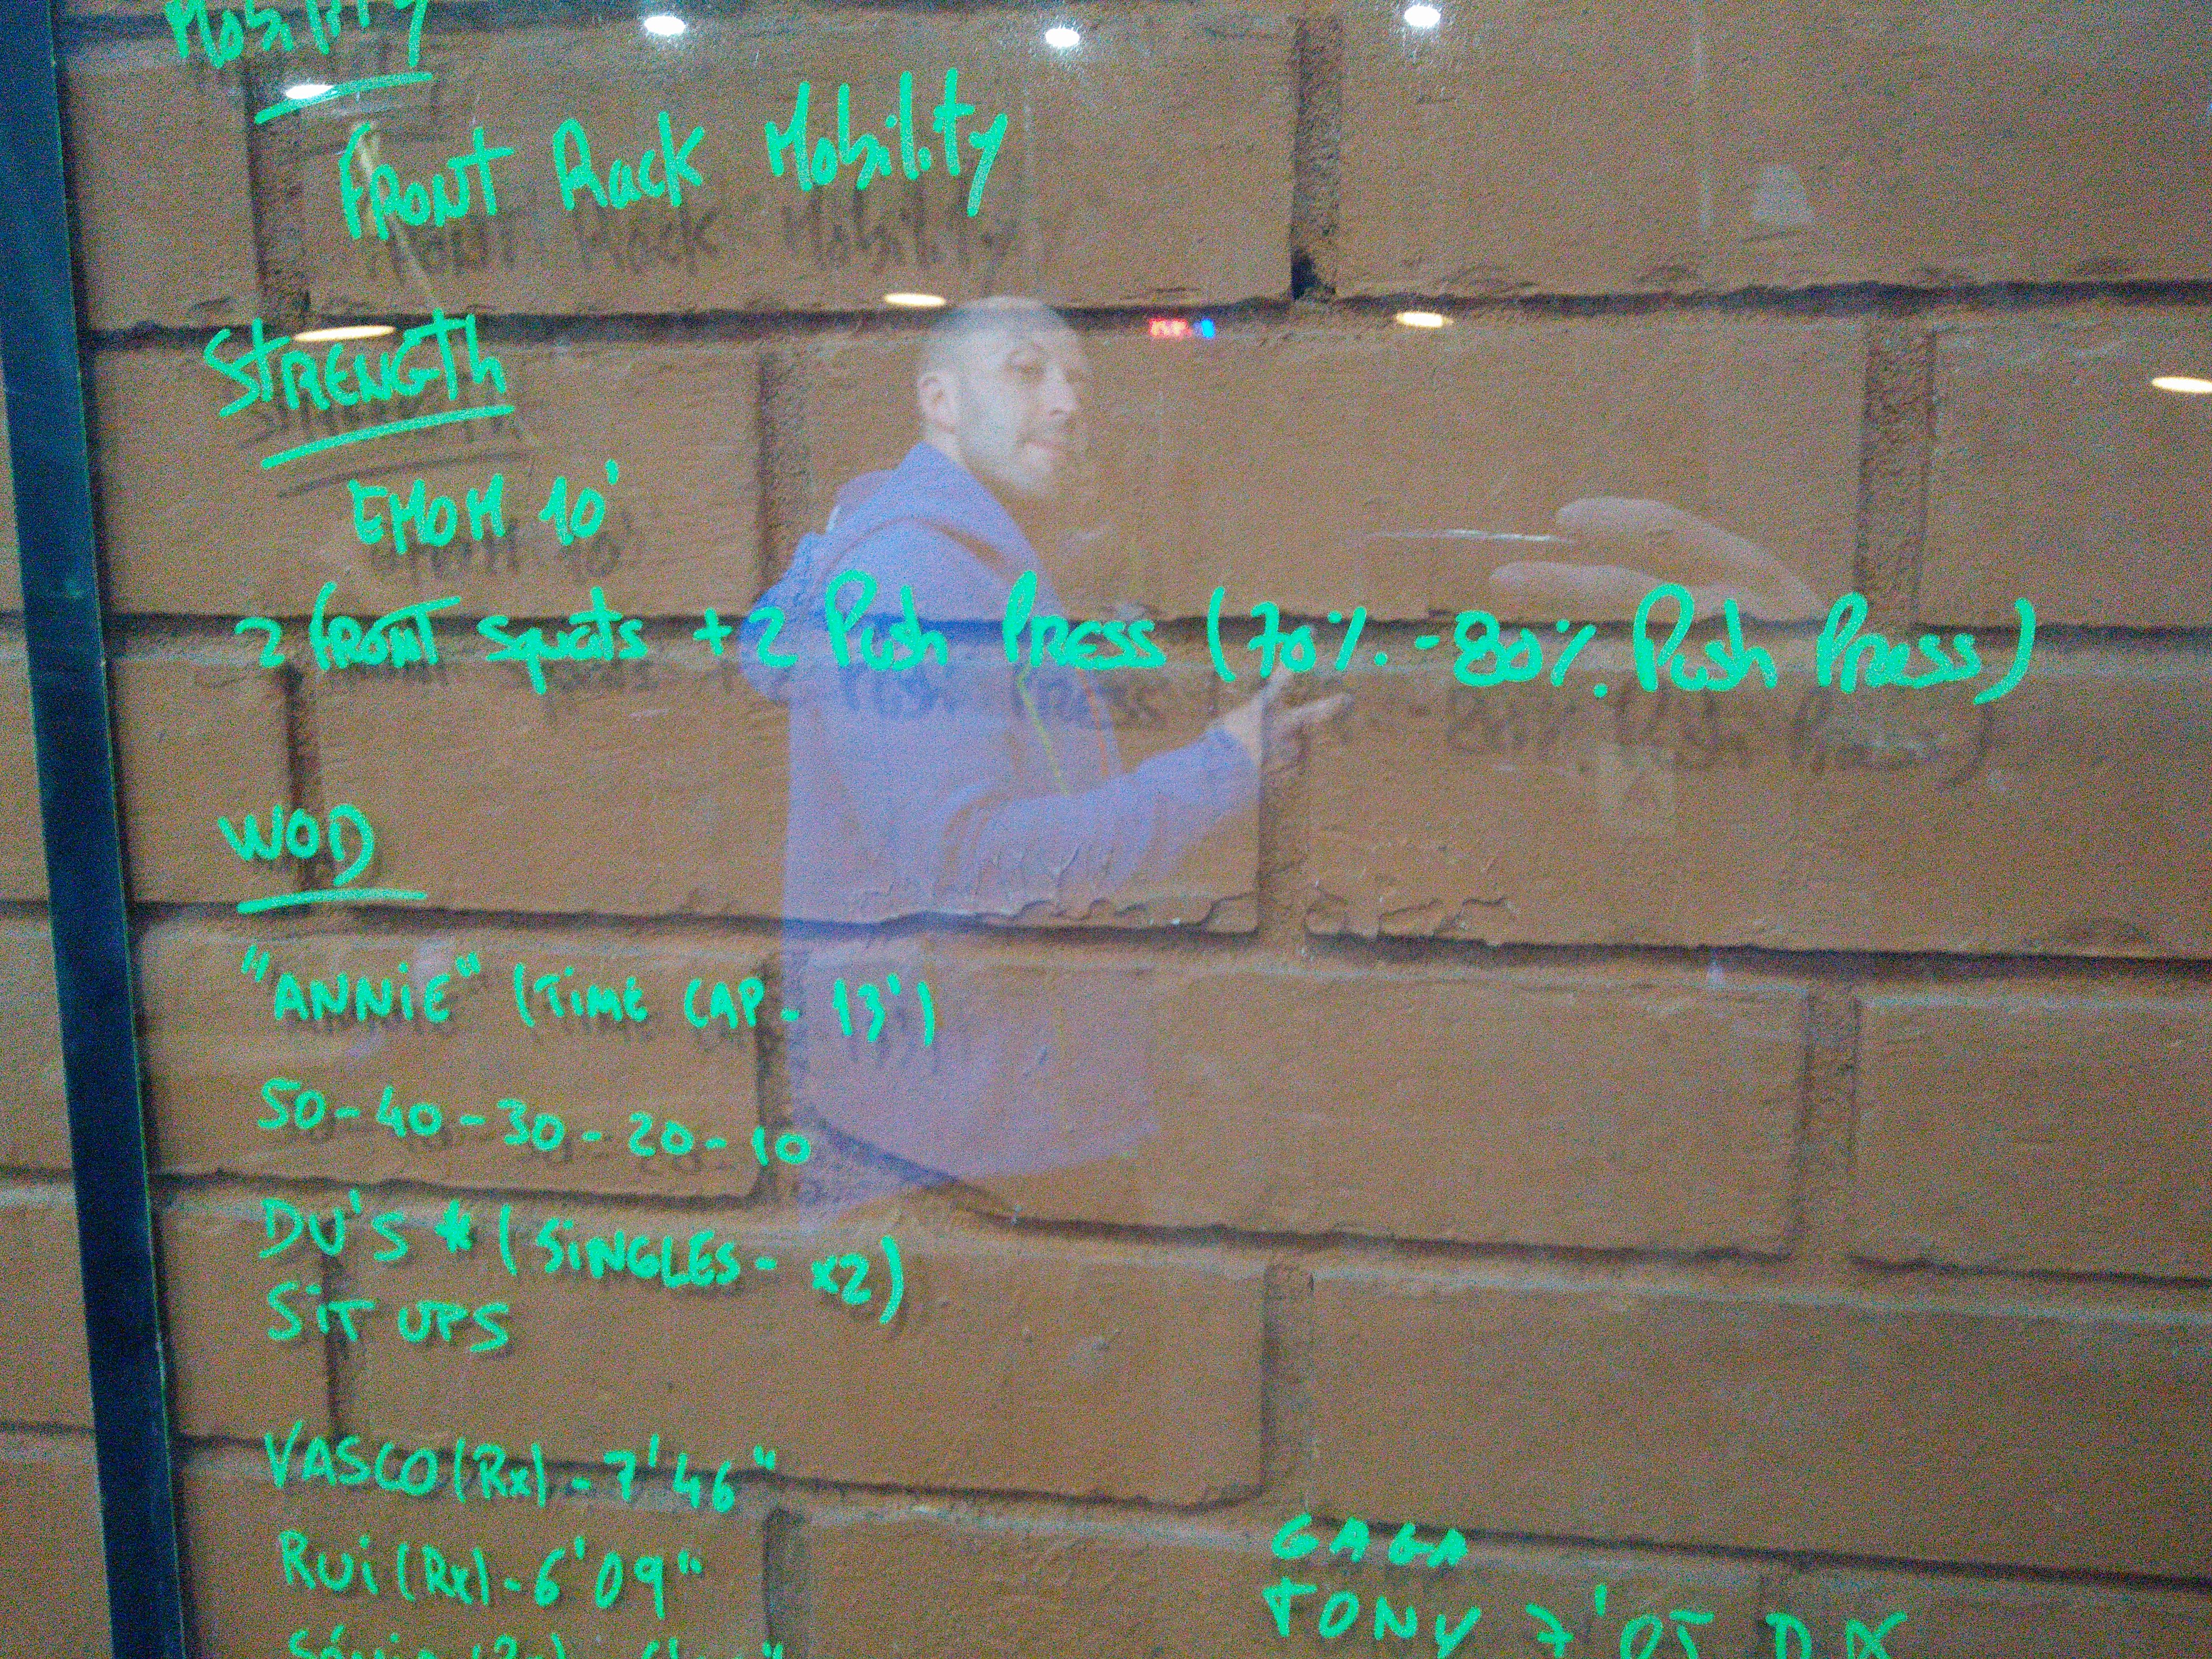 Mobility
FRONT Rack Mobility
STRENGTH
EMOM 10'
2 FRONT squats + 2 Push PRESS (70% - 80% Push PRESS)
WOD
"ANNiE" (TiME CAP - 13')
50-40-30-20-10
DU'S * (SiNGLES - x2)
SiT UPS
VASCO (Rx) - 7'46"
RUi (Rx) - 6'09"
GAGA
TONY 7'05